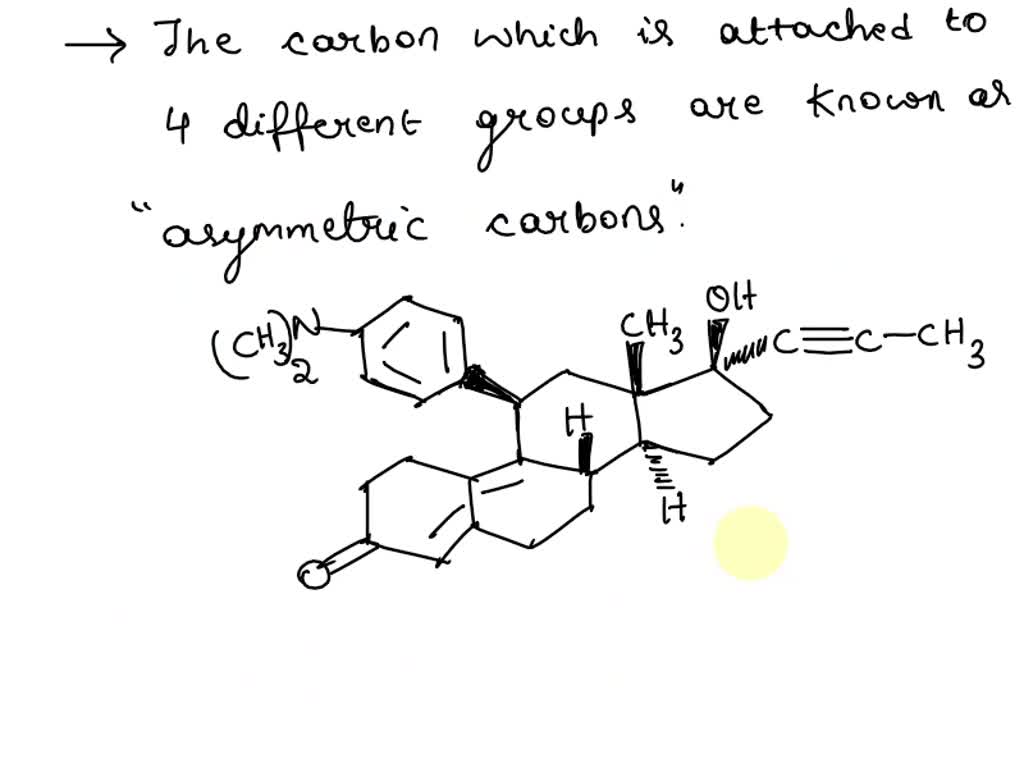 → The carbon which is attached to
4 different groups are known as
"asymmetric carbons".
OH
(CH3)2N
CH3
C≡C-CH3
H
H
O